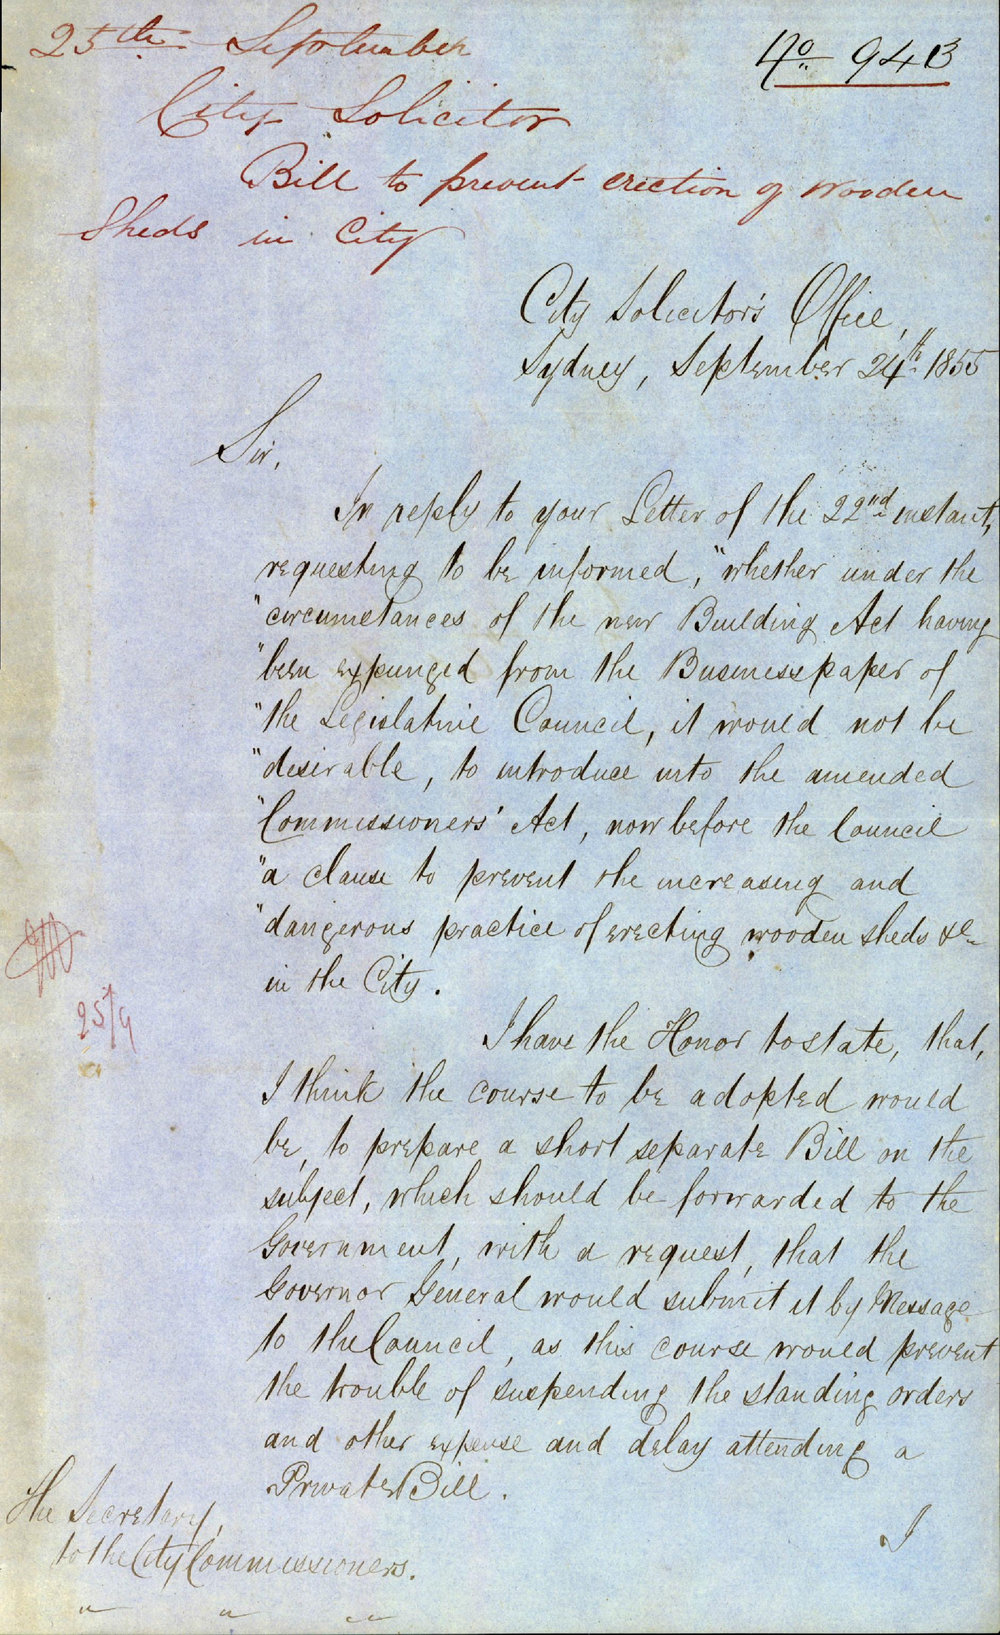 25th September
No 943
City Solicitor
Bill to prevent erection of Wooden
Sheds in City
City Solicitor's Office,
Sydney, September 24th 1855
Sir,
In reply to your Letter of the 22nd instant,
requesting to be informed, "whether under the
"circumstances of the new Building Act having
"been expunged from the Businesspaper of
"the Legislative Council, it would not be
"desirable, to introduce into the amended
"Commissioners' Act, now before the Council
"a clause to prevent the increasing and
"dangerous practice of erecting wooden sheds &c
in the City.
25/9
I have the Honor to state, that,
I think the course to be adopted would
be, to prepare a short separate Bill on the
subject, which should be forwarded to the
Government, with a request, that the
Governor General would submit it by Message
to the Council, as this course would prevent
the trouble of suspending the standing orders
and other expense and delay attending a
Private Bill.
I
The Secretary,
to the City Commissioners.
" " "